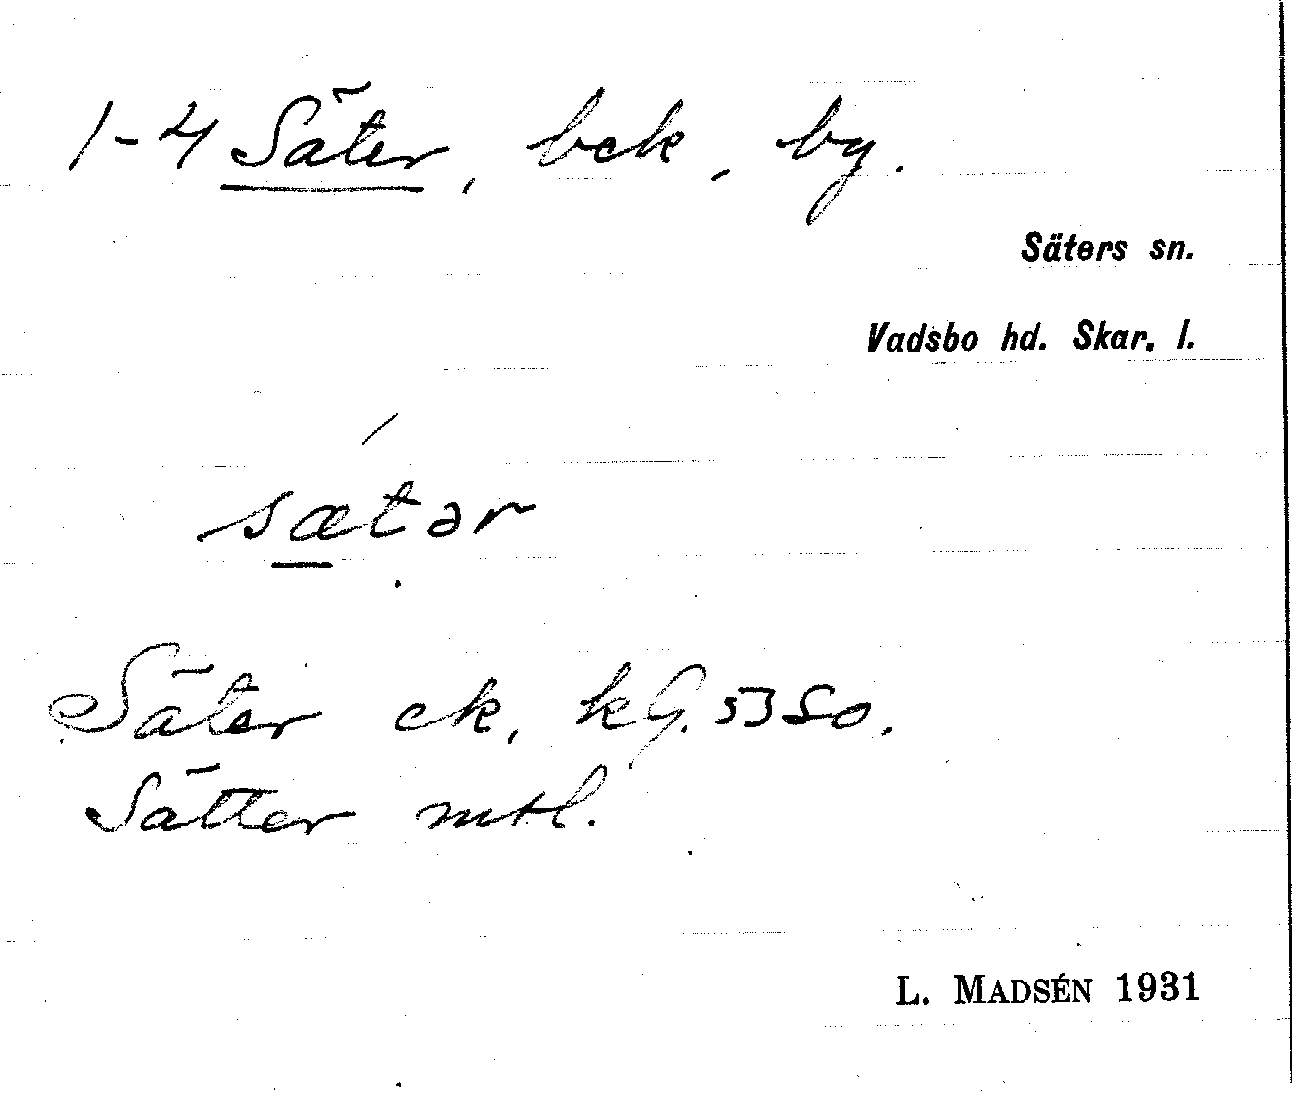 1-4 Säter, bck, by.
Säters sn.
Vadsbo hd. Skar. l.
sætər
Säter ek, kG. 53 So.
Sätter mtl.
L. MADSÉN 1931